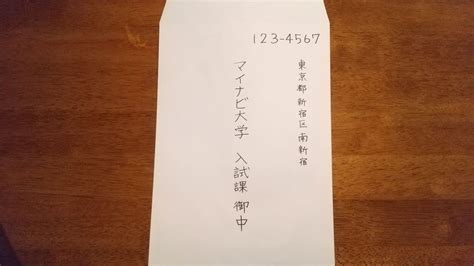 123-4567
東京都新宿区南新宿
マイナビ大学 入試課 御中